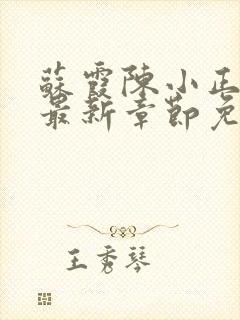 蘇霞陳小正
最新章節免
王秀琴